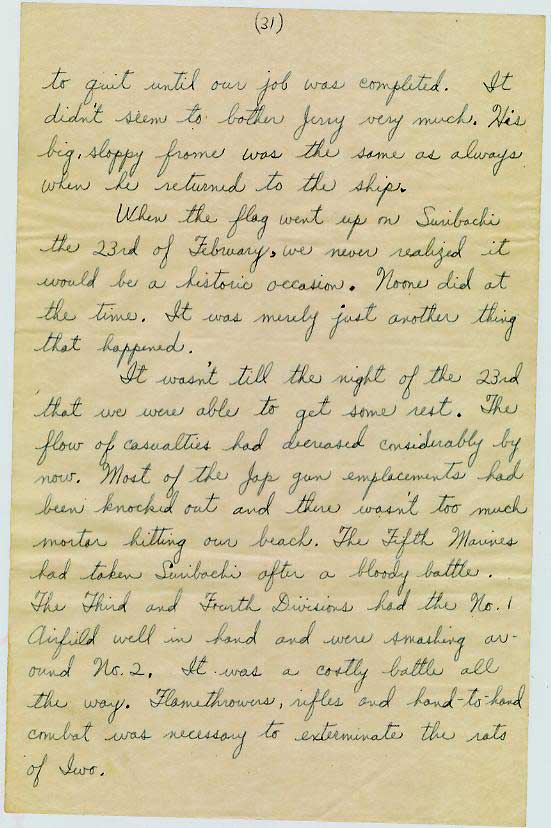 (31)
to quit until our job was completed. It
didn't seem to bother Jerry very much. His
big, sloppy frame was the same as always
when he returned to the ship.
When the flag went up on Suribachi
the 23rd of February, we never realized it
would be a historic occasion. Noone did at
the time. It was merely just another thing
that happened.
It wasn't till the night of the 23rd
that we were able to get some rest. The
flow of casualties had decreased considerably by
now. Most of the Jap gun emplacements had
been knocked out and there wasn't too much
mortar hitting our beach. The Fifth Marines
had taken Suribachi after a bloody battle.
The Third and Fourth Divisions had the No. 1
Airfield well in hand and were smashing ar-
ound No. 2. It was a costly battle all
the way. Flamethrowers, rifles and hand-to-hand
combat was necessary to exterminate the rats
of Iwo.